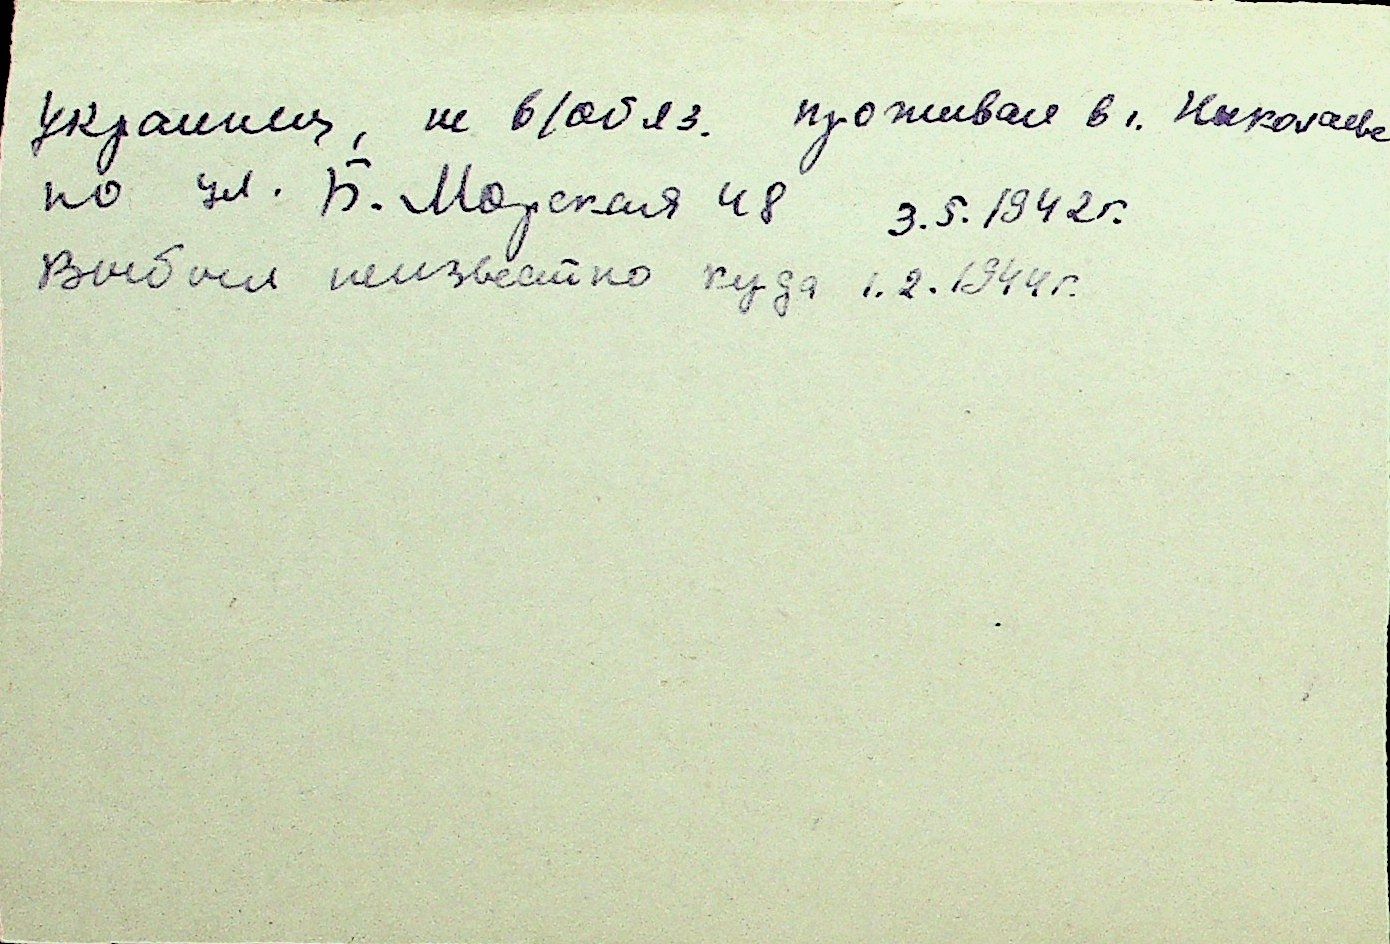 украинец, не в/обяз. проживал в г. Николаеве
по ул. Б. Морская 48 3.5.1942г.
Выбыл неизвестно куда 1.2.1944г.